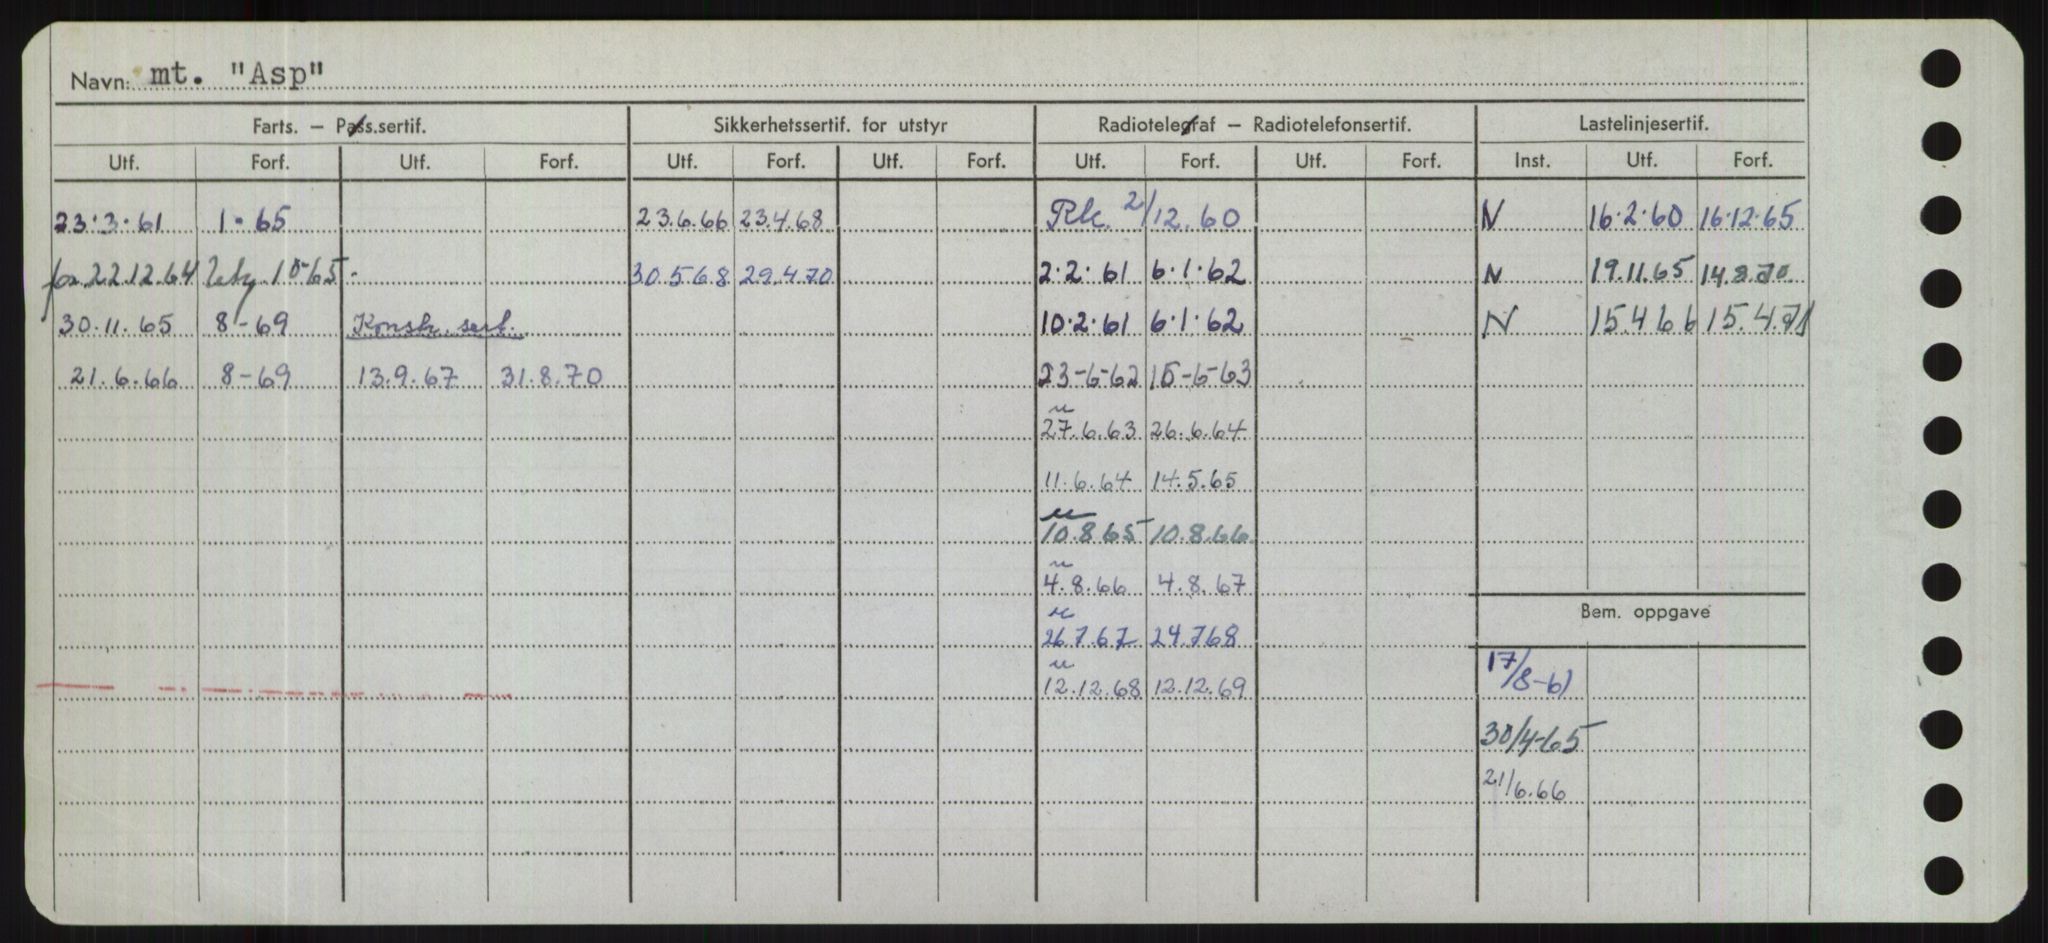 Navn: mt. "Asp"
Farts. – Pass.sertif. Sikkerhetssertif. for utstyr Radiotelegraf – Radiotelefonsertif. Lastelinjesertif.
Utf. Forf. Utf. Forf. Utf. Forf. Utf. Forf. Utf. Forf. Utf. Forf. Inst. Utf. Forf.
23.3.61 1.65 23.6.66 23.4.68 Rk. 2/12.60 N 16.2.60 16.12.65
22.12.64 10-65 30.5 68 29.4.70 2.2.61 6.1.62 N 19.11.65 14.8.70
30.11.65 8-69 Konstr. sert. 10.2.61 6.1.62 N 15 4 66 15.4.71
21.6.66 8-69 13.9.67 31.8.70 23-6-62 15-6-63
u
27.6.63 26.6.64
11.6.64 14.5.65
u
10.8 65 10.8.66
u
4.8.66 4.8.67
Bem. oppgave
u
26.7.67 24.768
u
12.12.68 12.12.69 17/8-61
30/4-65
21/6.66